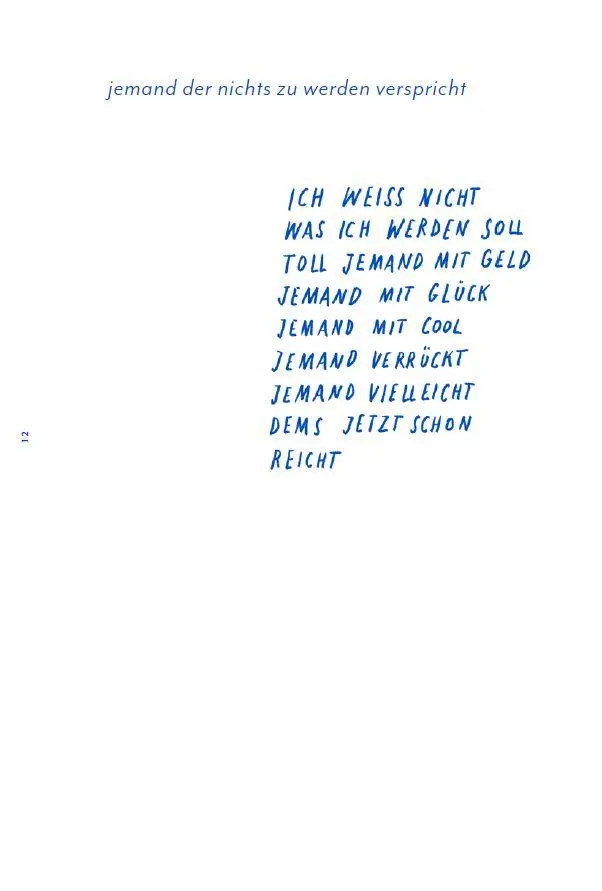 jemand der nichts zu werden verspricht
ICH WEISS NICHT
WAS ICH WERDEN SOLL
TOLL JEMAND MIT GELD
JEMAND MIT GLÜCK
JEMAND MIT COOL
JEMAND VERRÜCKT
JEMAND VIELLEICHT
DEMS JETZT SCHON
REICHT
12